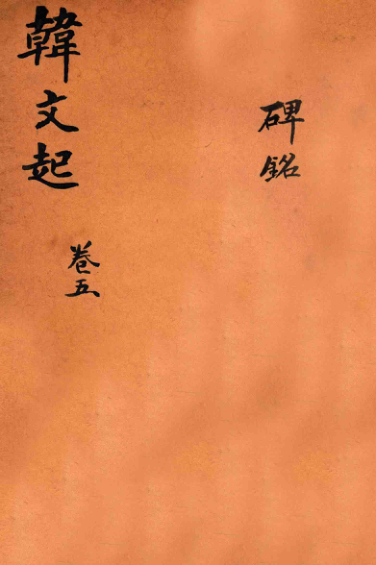 碑銘
韓文起
卷五